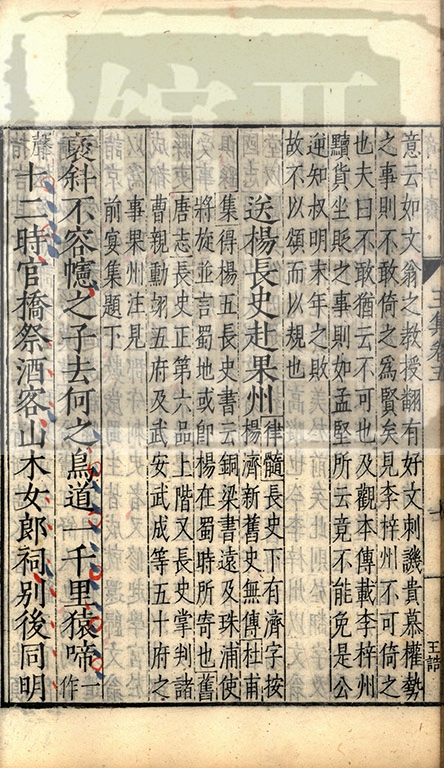 意云如文翁之教授翻有好文刺譏貴慕權勢
之事則不敢倚之爲賢矣見李梓州不可倚之
也夫曰不敢猶云不可也及觀本傳載李梓州
黷貨坐貶之事則如孟堅所云竟不能免是公
逆知叔明末年之敗
故不以頌而以規也
送楊長史赴果州
律髓長史下有濟字按
楊濟新舊史無傳杜甫
集得楊五長史書云銅梁書遠及珠浦使
將旋並言蜀地或卽楊在蜀時所寄也舊
唐志長史正第六品上階又長史掌判諸
曹親勳翊五府及武安武成等五十府之
事果州注見
前宴集題下
褒斜不容幰之子去何之鳥道一千里猿啼一作
聲十二時官橋祭酒客山木女郎祠別後同明
王誥